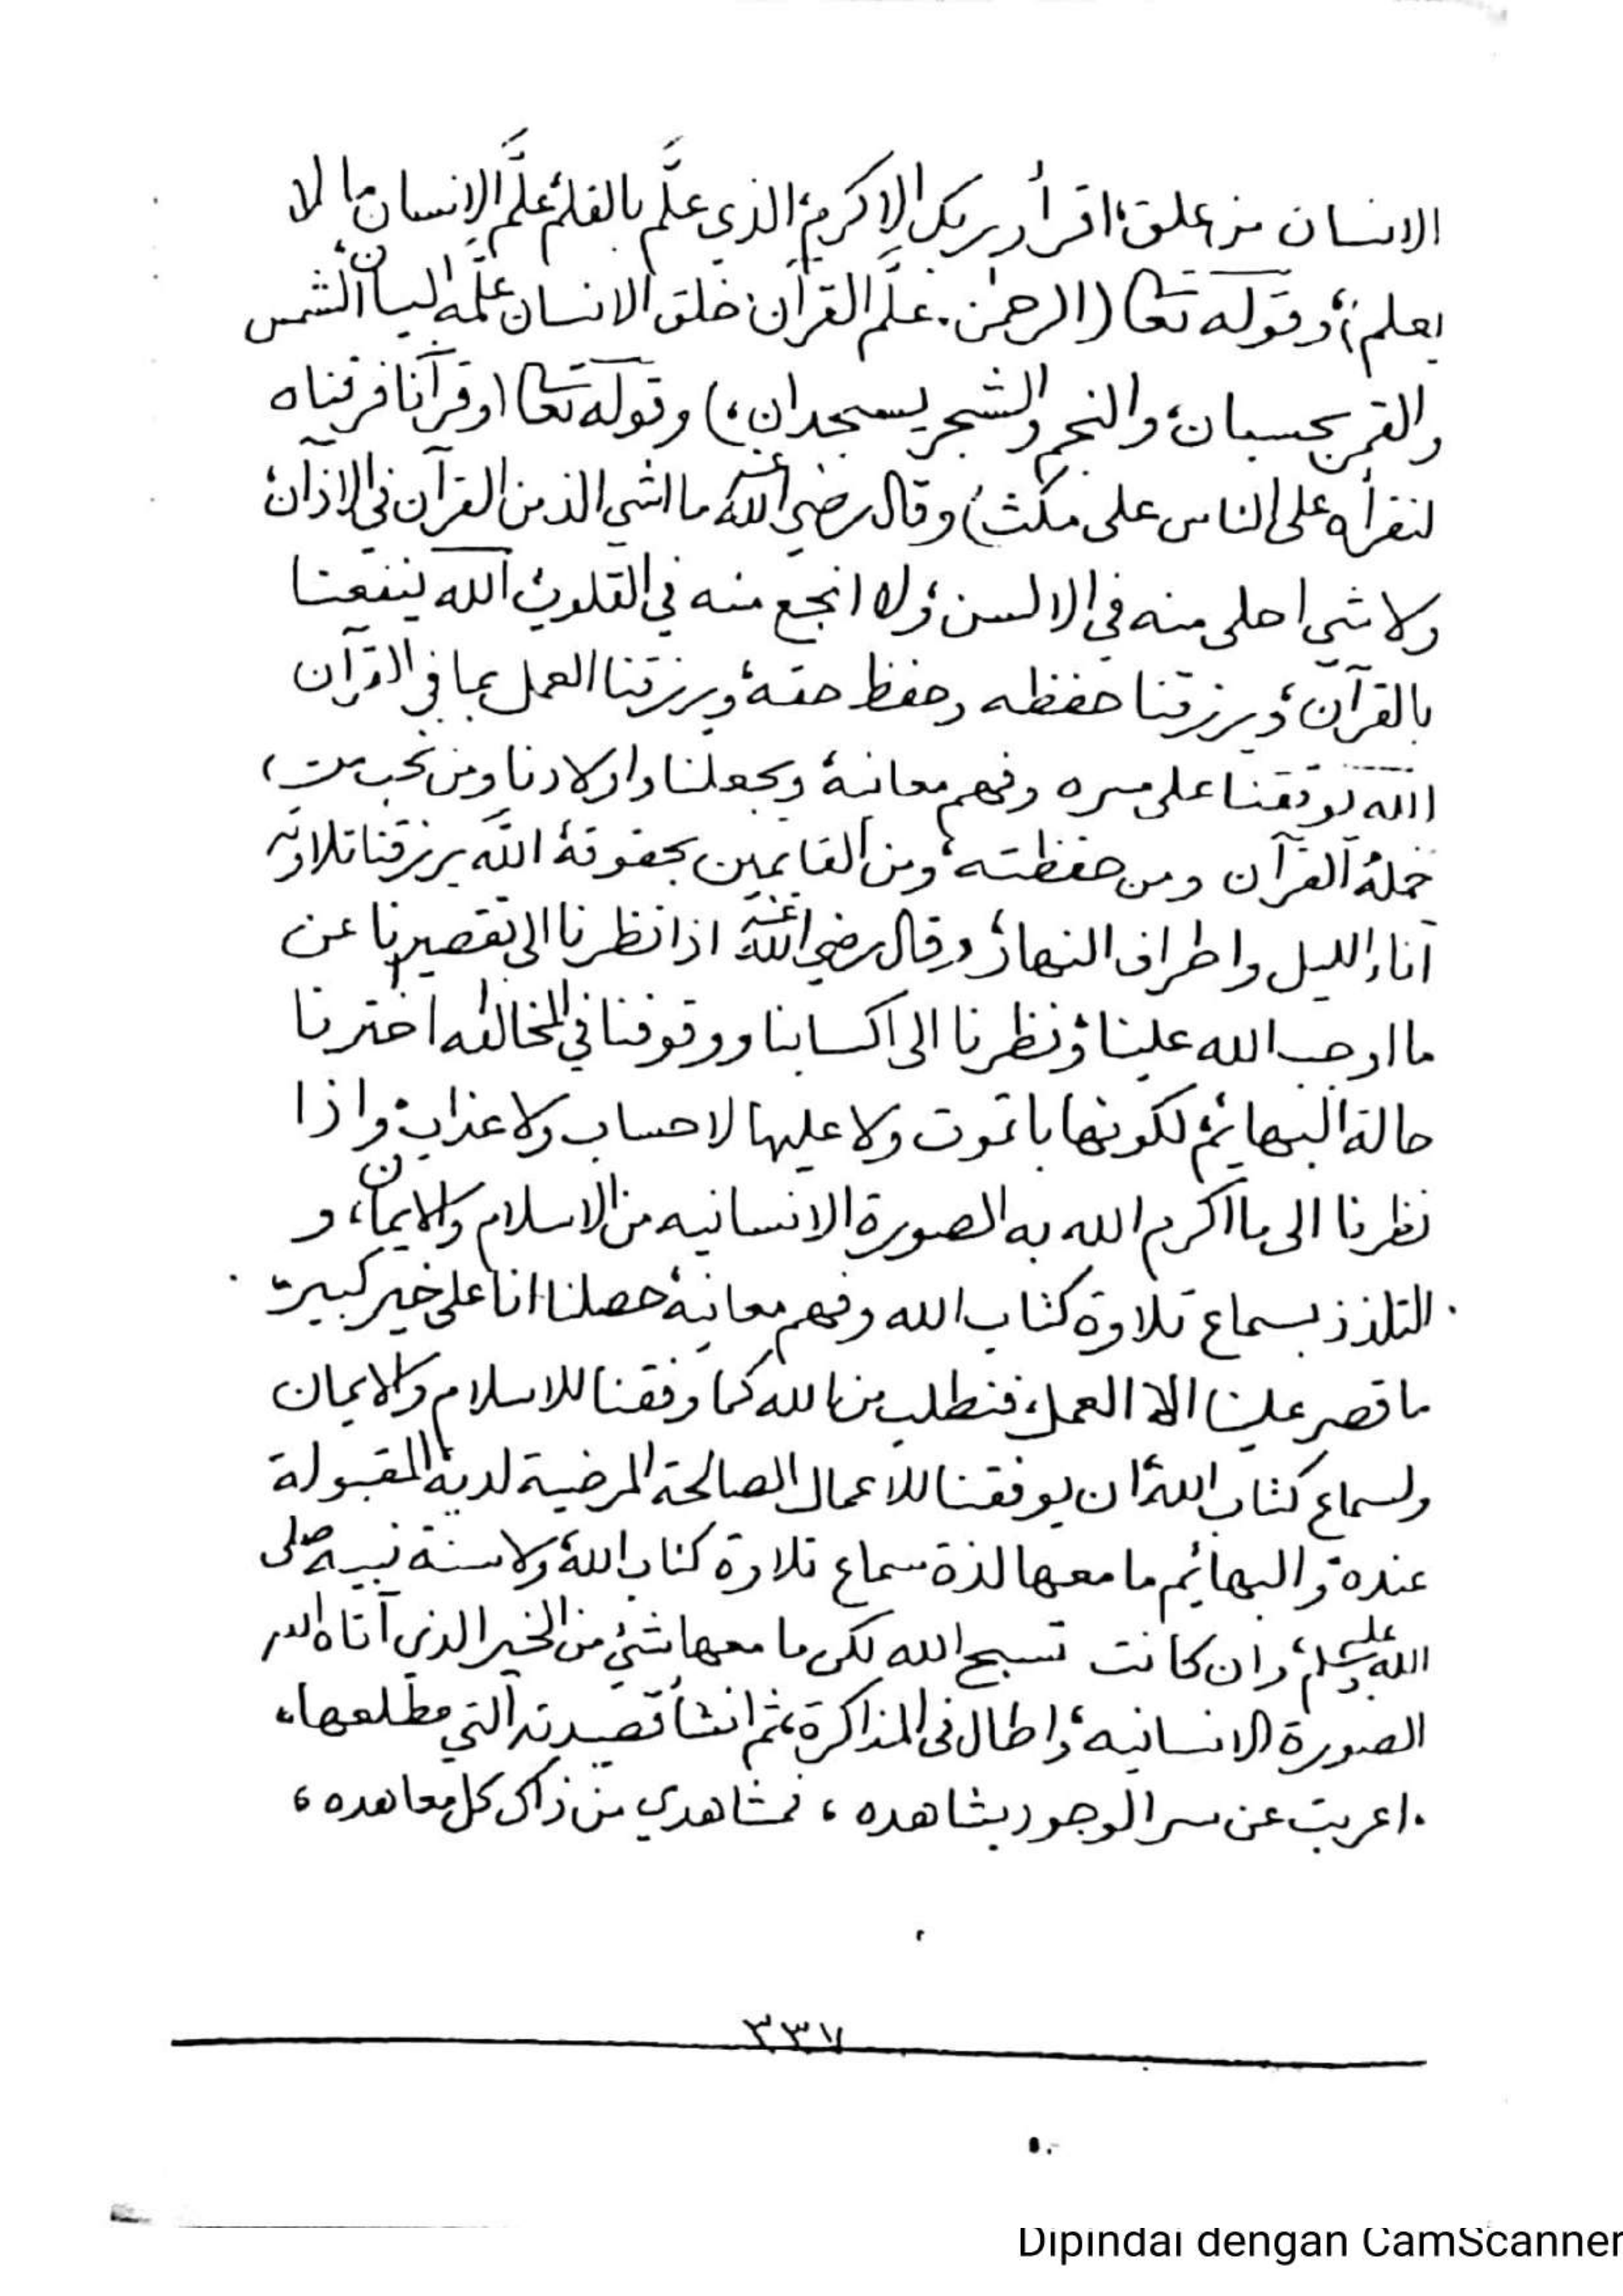 الانسان من علق، اقرأ وربك الاكرم، الذي علَّم بالقلم، علَّم الإنسان ما لا
يعلم)، وقوله تعا (الرحمٰن. علَّم القرآن، خلق الانسان علَّمه البيان، الشمس
والقمر بحسبان، والنجم والشجر يسجدان،) وقوله تعا (وقرآنا فرقناه
لنقرأه على الناس على مكث) وقال رضي الله عنه ما اشي الذ من القرآن في الاذان،
ولا شي احلى منه في الالسن، ولا انجع منه في القلوب، الله ينفعنا
بالقرآن، ويرزقنا حفظه وحفظ حقه، ويرزقنا العمل بما في القرآن
الله يوقفنا على سره وفهم معانيه، ويجعلنا واولادنا ومن نحب من،
حملة القرآن ومن حفظته، ومن القايمين بحقوقه، الله يرزقنا تلاوته
آناء الليل واطراف النهار، وقال رضي الله عنه اذا نظرنا الى تقصيرنا عن
ما اوجب الله علينا، ونظرنا الى اكسابنا ووقوفنا في المخالفه اخترنا
حالة البهائم، لكونها باتموت ولا عليها لا حساب ولا عذاب، واذا
نظرنا الى ما اكرم الله به الصورة الانسانيه من الاسلام والايمان، و
التلذذ بسماع تلاوة كتاب الله وفهم معانيه، حصلنا انا على خير كبير،
ما قصر علينا الا العمل، فنطلب من الله كما وفقنا للاسلام والايمان
ولسماع كتاب الله، ان يوفقنا للاعمال الصالحة المرضية لديه، المقبولة
عنده، والبهائم ما معها لذة سماع تلاوة كتاب الله، ولا سنة نبيه صلى
الله عليه وسلم، وان كانت تسبح الله لكن ما معها شيء من الخير الذي آتاه الله
الصورة الانسانيه، واطال في المذاكرة، ثم انشأ قصيدته التي مطلعها،
اعربت عن سر الوجود بشاهده ، فمشاهدي من ذاك كل معاهده ،
٣٣٧
Dipindai dengan CamScanner